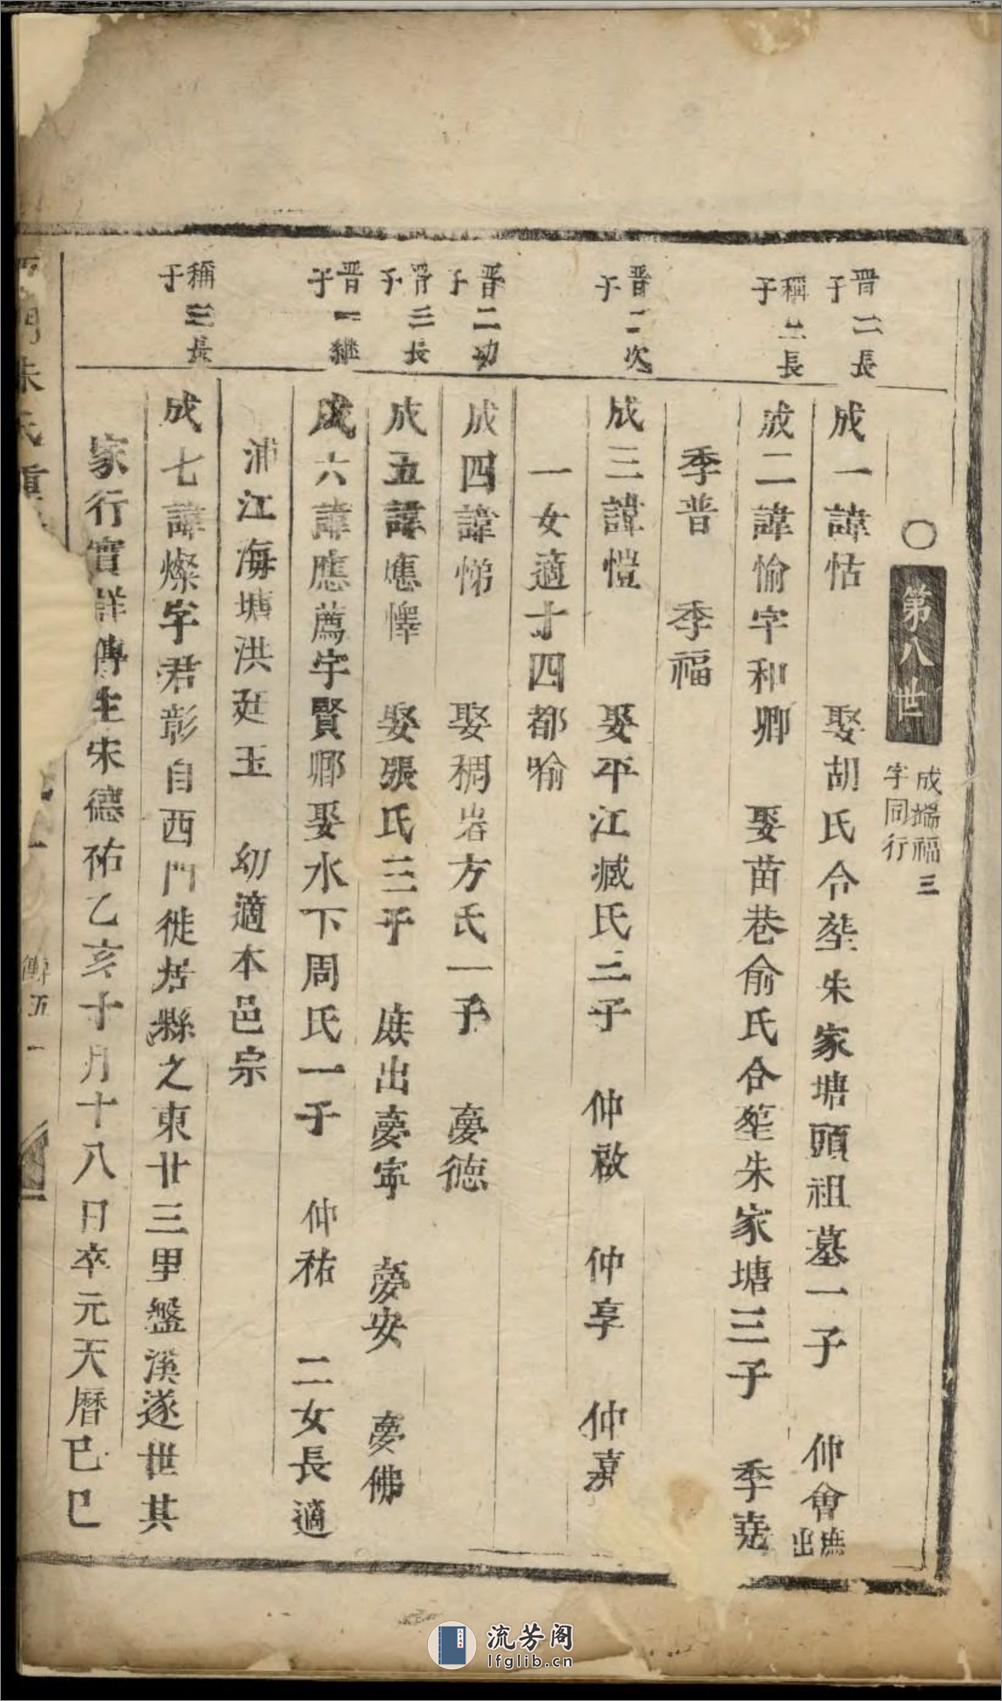 ○第八世
成端福三
字同行
晋二長
子
成一諱怙 娶胡氏合塟朱家塘頭祖墓一子 仲會庶出
稱二長
子
成二諱愉字和卿 娶苗巷俞氏合塟朱家塘三子 季堯
季普 季福
晋二次
子
成三諱愷 娶平江臧氏三子 仲啟 仲享 仲嘉
一女適十四都喻
晋二幼
子
成四諱悌 娶稠岩方氏一子 夢德
晋三長
子
成五諱應懌 娶張氏三子 庶出夢寜 夢安 夢佛
晋一継
子
成六諱應薦字賢卿娶水下周氏一子 仲祐 二女長適
浦江海塘洪廷玉 幼適本邑宗
稱三長
子
成七諱燦字君彰自西門徙居縣之東廿三里盤溪遂世其
家行實詳傳生宋德祐乙亥十月十八日卒元天曆己巳
西門朱氏重
流芳阁
lfglib.cn